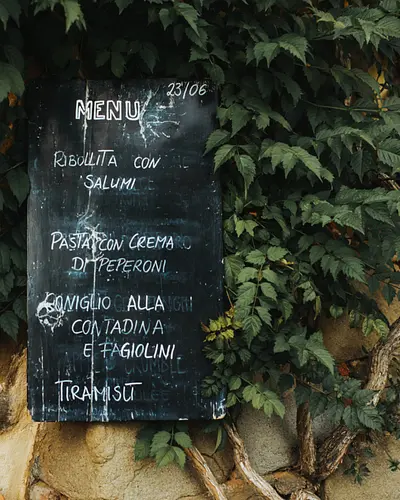 23/06
MENU
RIBOLLITA CON
SALUMI
PASTA CON CREMA
DI PEPERONI
CONIGLIO ALLA
CONTADINA
E FAGIOLINI
TIRAMISÙ